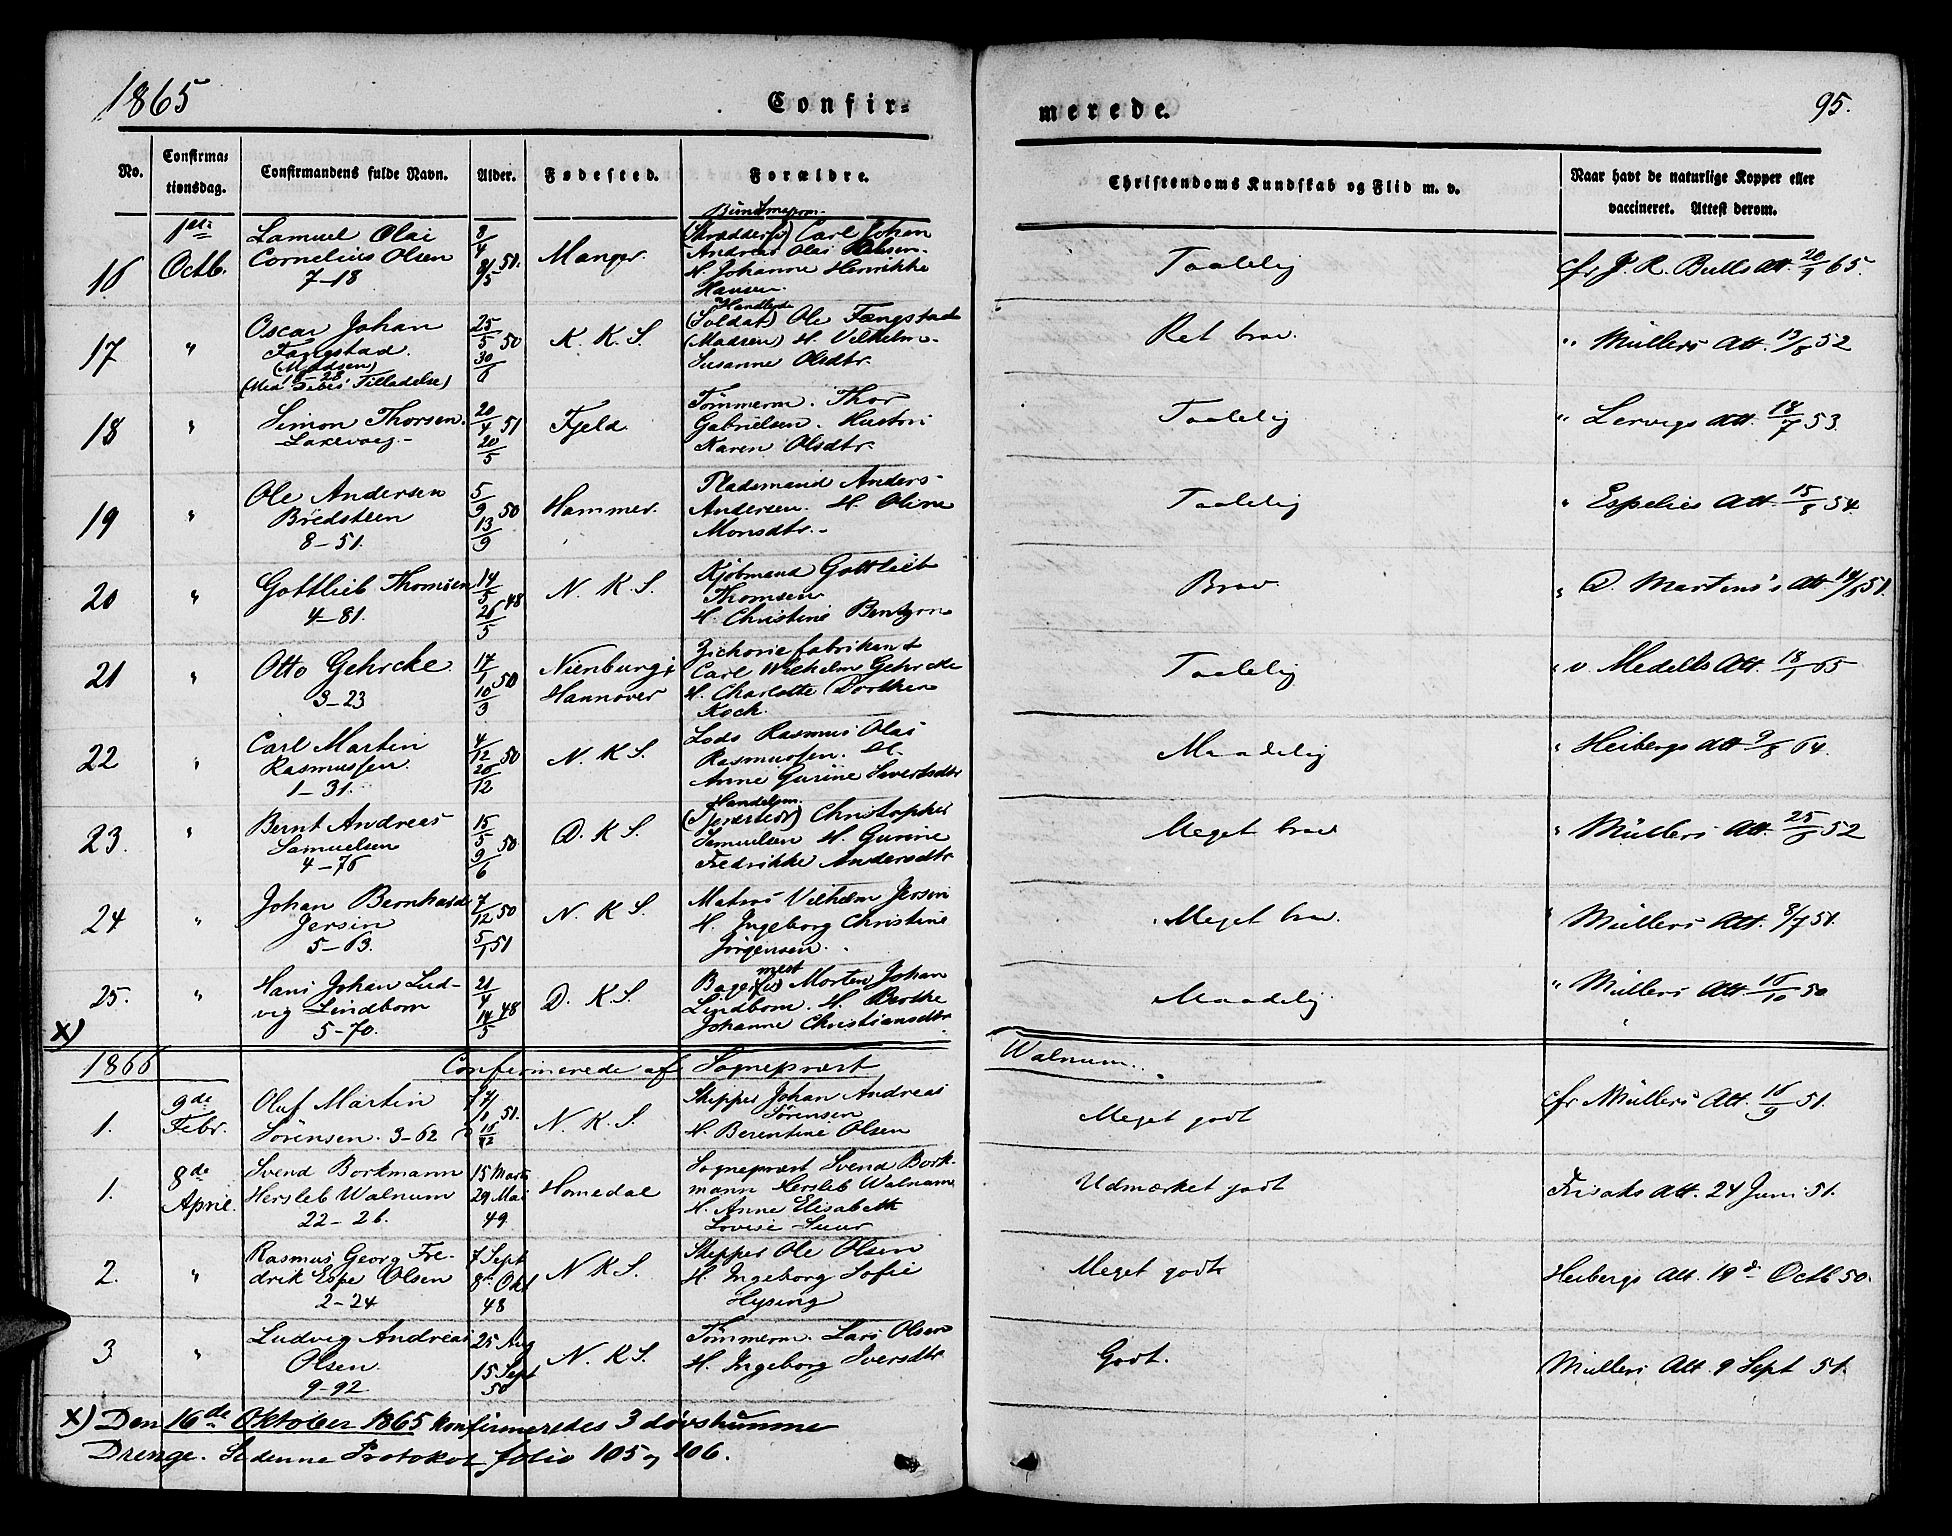 1865 Confir-
merede. 95.
No. Confirma-tionsdag. Confirmandens fulde Navn. Alder. Fødested. Forældre. Christendoms Kundskab og Flid m. v. Naar havt de naturlige Kopper eller vaccineret. Attest derom.
16 1ste Octb.
Samuel Olai
Cornelius Olsen
7-18
8/4 8/5 51.
Manger.
(Skrædder) Carl Johan
Andreas Olai Olsen.
H. Johanne Henrikke
Hansen.
Taalelig
cfr J. R. Bulls Att. 20/9 65.
17 "
Oscar Johan
Fængstad.
(Madsen)
18-28
(Med Bibes Tilladelse)
25/5 50 30/6
K. K. S.
Handlende
(Soldat) Ole Fængstad
(Madsen) H. Vilhelm-
Susanne Olsdtr.
Ret brav.
" Müllers Att. 13/8 52
18 "
Simon Thorsen
20/4 51 20/5
Fjeld
Tömmerm. Thor
Gabrielsen. Hustru
Karen Olsdtr.
Taalelig
" Lervigs Att. 18/7 53.
19 "
Ole Andersen
Bredsteen
8-51.
5/9 50 13/9
Hammer.
Pladsmand Anders
Andersen. H. Oline
Monsdtr.
Taalelig
" Espelies Att. 15/8 54.
20 "
Gottlieb Thomsen
4-81.
14/5 48 26/5
N. K. S.
Kjöbmand Gottlieb
Thomsen
H. Christine Bentzon
Brav
" D. Martens's Att. 14/6 51.
21 "
Otto Gehrcke
3-23
17/1 50 10/3
Nienburg i
Hannover
Zichoriefabrikant
Carl Wilhelm Gehrcke
H. Charlotte Dorthea
Koch.
Taalelig
" v. Medells Att. 18/1 65
22 "
Carl Martin
Rasmussen.
1-31.
4/12 50 20/12
N. K. S.
Lods Rasmus Olai
Rasmussen. H.
Anne Gurine Sivertsdtr
Maadelig
" Heibergs Att 9/8 64.
23. "
Bernt Andreas
Samuelsen
4-76
15/5 50 9/6
D. K. S.
Handelsm.
Christopher
Samuelsen H. Gurine
Fredrikke Andersdtr
Meget brav
" Müllers Att. 25/8 52
24 "
Johan Bernhard
Jersin
5-63.
7/12 50 5/1 51
N. K. S.
Matros Vilhelm Jersin
H. Ingeborg Christine
Jörgensen.
Meget brav.
" Müllers Att. 8/7 51.
25. "
Hans Johan Lud-
vig Lindbom
5-70.
21/4 48 14/5
D. K. S.
Bagermest Morten Johan
Lindbom. H. Berthe
Johanne Christiansdtr
Maadelig.
" Müllers Att. 16/10 50
X)
1866 Confirmerede af Sognepræst Walnum.
1. 9de Febr.
Oluf Martin
Sörensen. 3-62
N. K. S.
Skipper Johan Andreas
Sörensen
H. Berentine Olsen
Meget godt
cfr Müllers Att. 16/9 51.
1. 8de April.
Svend Borkmann
Hersleb Walnum
22-26.
15 Marts
29 Mai
49
Homedal
Sognepræst Svend Bork-
mann Hersleb Walnum
H. Anne Elisabeth
Lovise Suur
Udmærket godt
Frisaks Att. 24 Juni 51.
2. "
Rasmus Georg Fre-
drik Espe Olsen
2-24
7 Sept
8de Okt
48
N K S.
Skipper Ole Olsen
H. Ingeborg Sofie
Hysing
Meget godt
Heibergs Att. 19de Octb 50.
3 "
Ludvig Andreas
Olsen.
9-92
25 Aug
15 Sept
50
N. K S.
Tömmerm. Lars Olsen
H. Ingeborg Iversdtr
Godt.
Müllers Att 9 Sept 51.
X) Den 16de Oktober 1865 konfirmeredes 3 døvstumme
Drenge. Se denne Protokol folio 105 og 106.